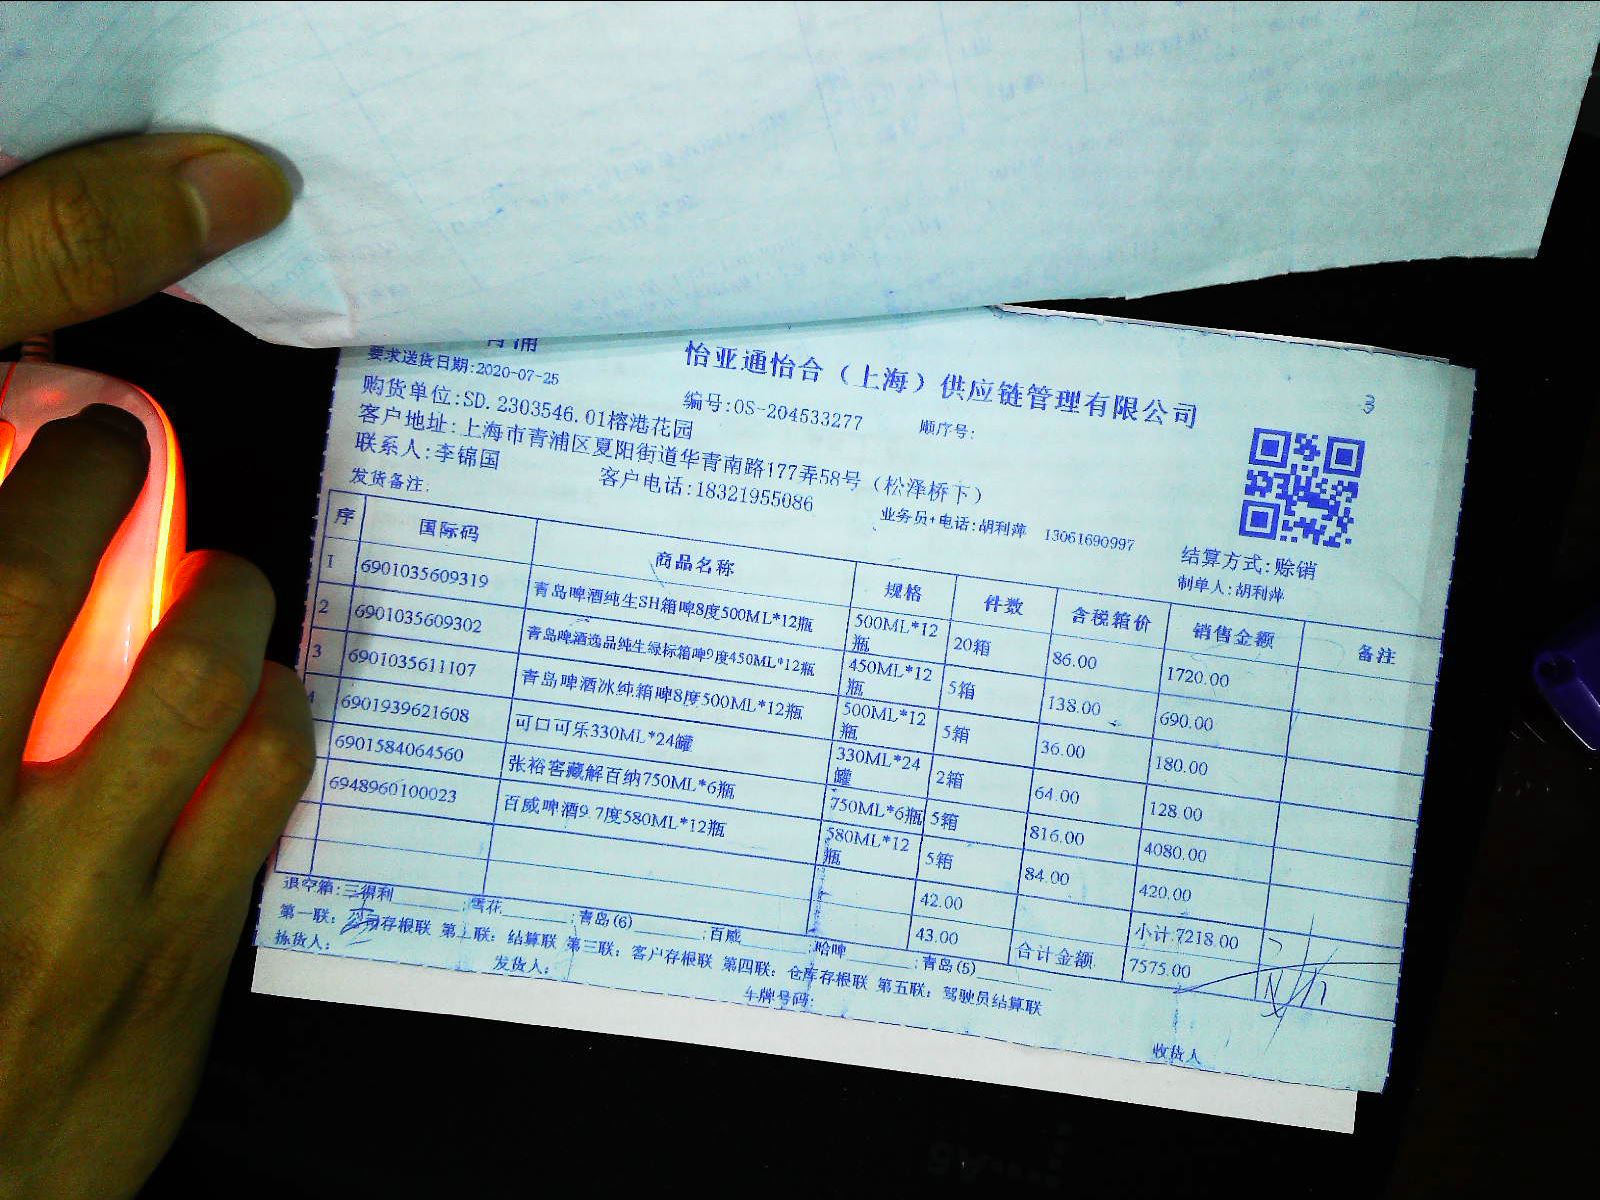 青浦
怡亚通怡合（上海）供应链管理有限公司
3
要求送货日期:2020-07-25
编号:OS-204533277
顺序号:
购货单位:SD.2303546.01榕港花园
客户地址:上海市青浦区夏阳街道华青南路177弄58号（松泽桥下）
联系人:李锦国
客户电话:18321955086
业务员+电话:胡利萍 13061690997
结算方式:赊销
发货备注:
制单人:胡利萍
序 国际码 商品名称 规格 件数 含税箱价 销售金额 备注
1 6901035609319 青岛啤酒纯生SH箱啤8度500ML*12瓶 500ML*12瓶 20箱 86.00 1720.00
2 6901035609302 青岛啤酒逸品纯生绿标箱啤9度450ML*12瓶 450ML*12瓶 5箱 138.00 690.00
3 6901035611107 青岛啤酒冰纯箱啤8度500ML*12瓶 500ML*12瓶 5箱 36.00 180.00
4 6901939621608 可口可乐330ML*24罐 330ML*24罐 2箱 64.00 128.00
6901584064560 张裕窖藏解百纳750ML*6瓶 750ML*6瓶 5箱 816.00 4080.00
6948960100023 百威啤酒9.7度580ML*12瓶 580ML*12瓶 5箱 84.00 420.00
42.00 小计:7218.00
43.00 合计金额 7575.00
退空箱:三得利 ;雪花 ;青岛(6) ;百威 ;哈啤 ;青岛(5)
第一联：存根联 第二联：结算联 第三联：客户存根联 第四联：仓库存根联 第五联：驾驶员结算联
拣货人： 发货人： 车牌号码: 收货人